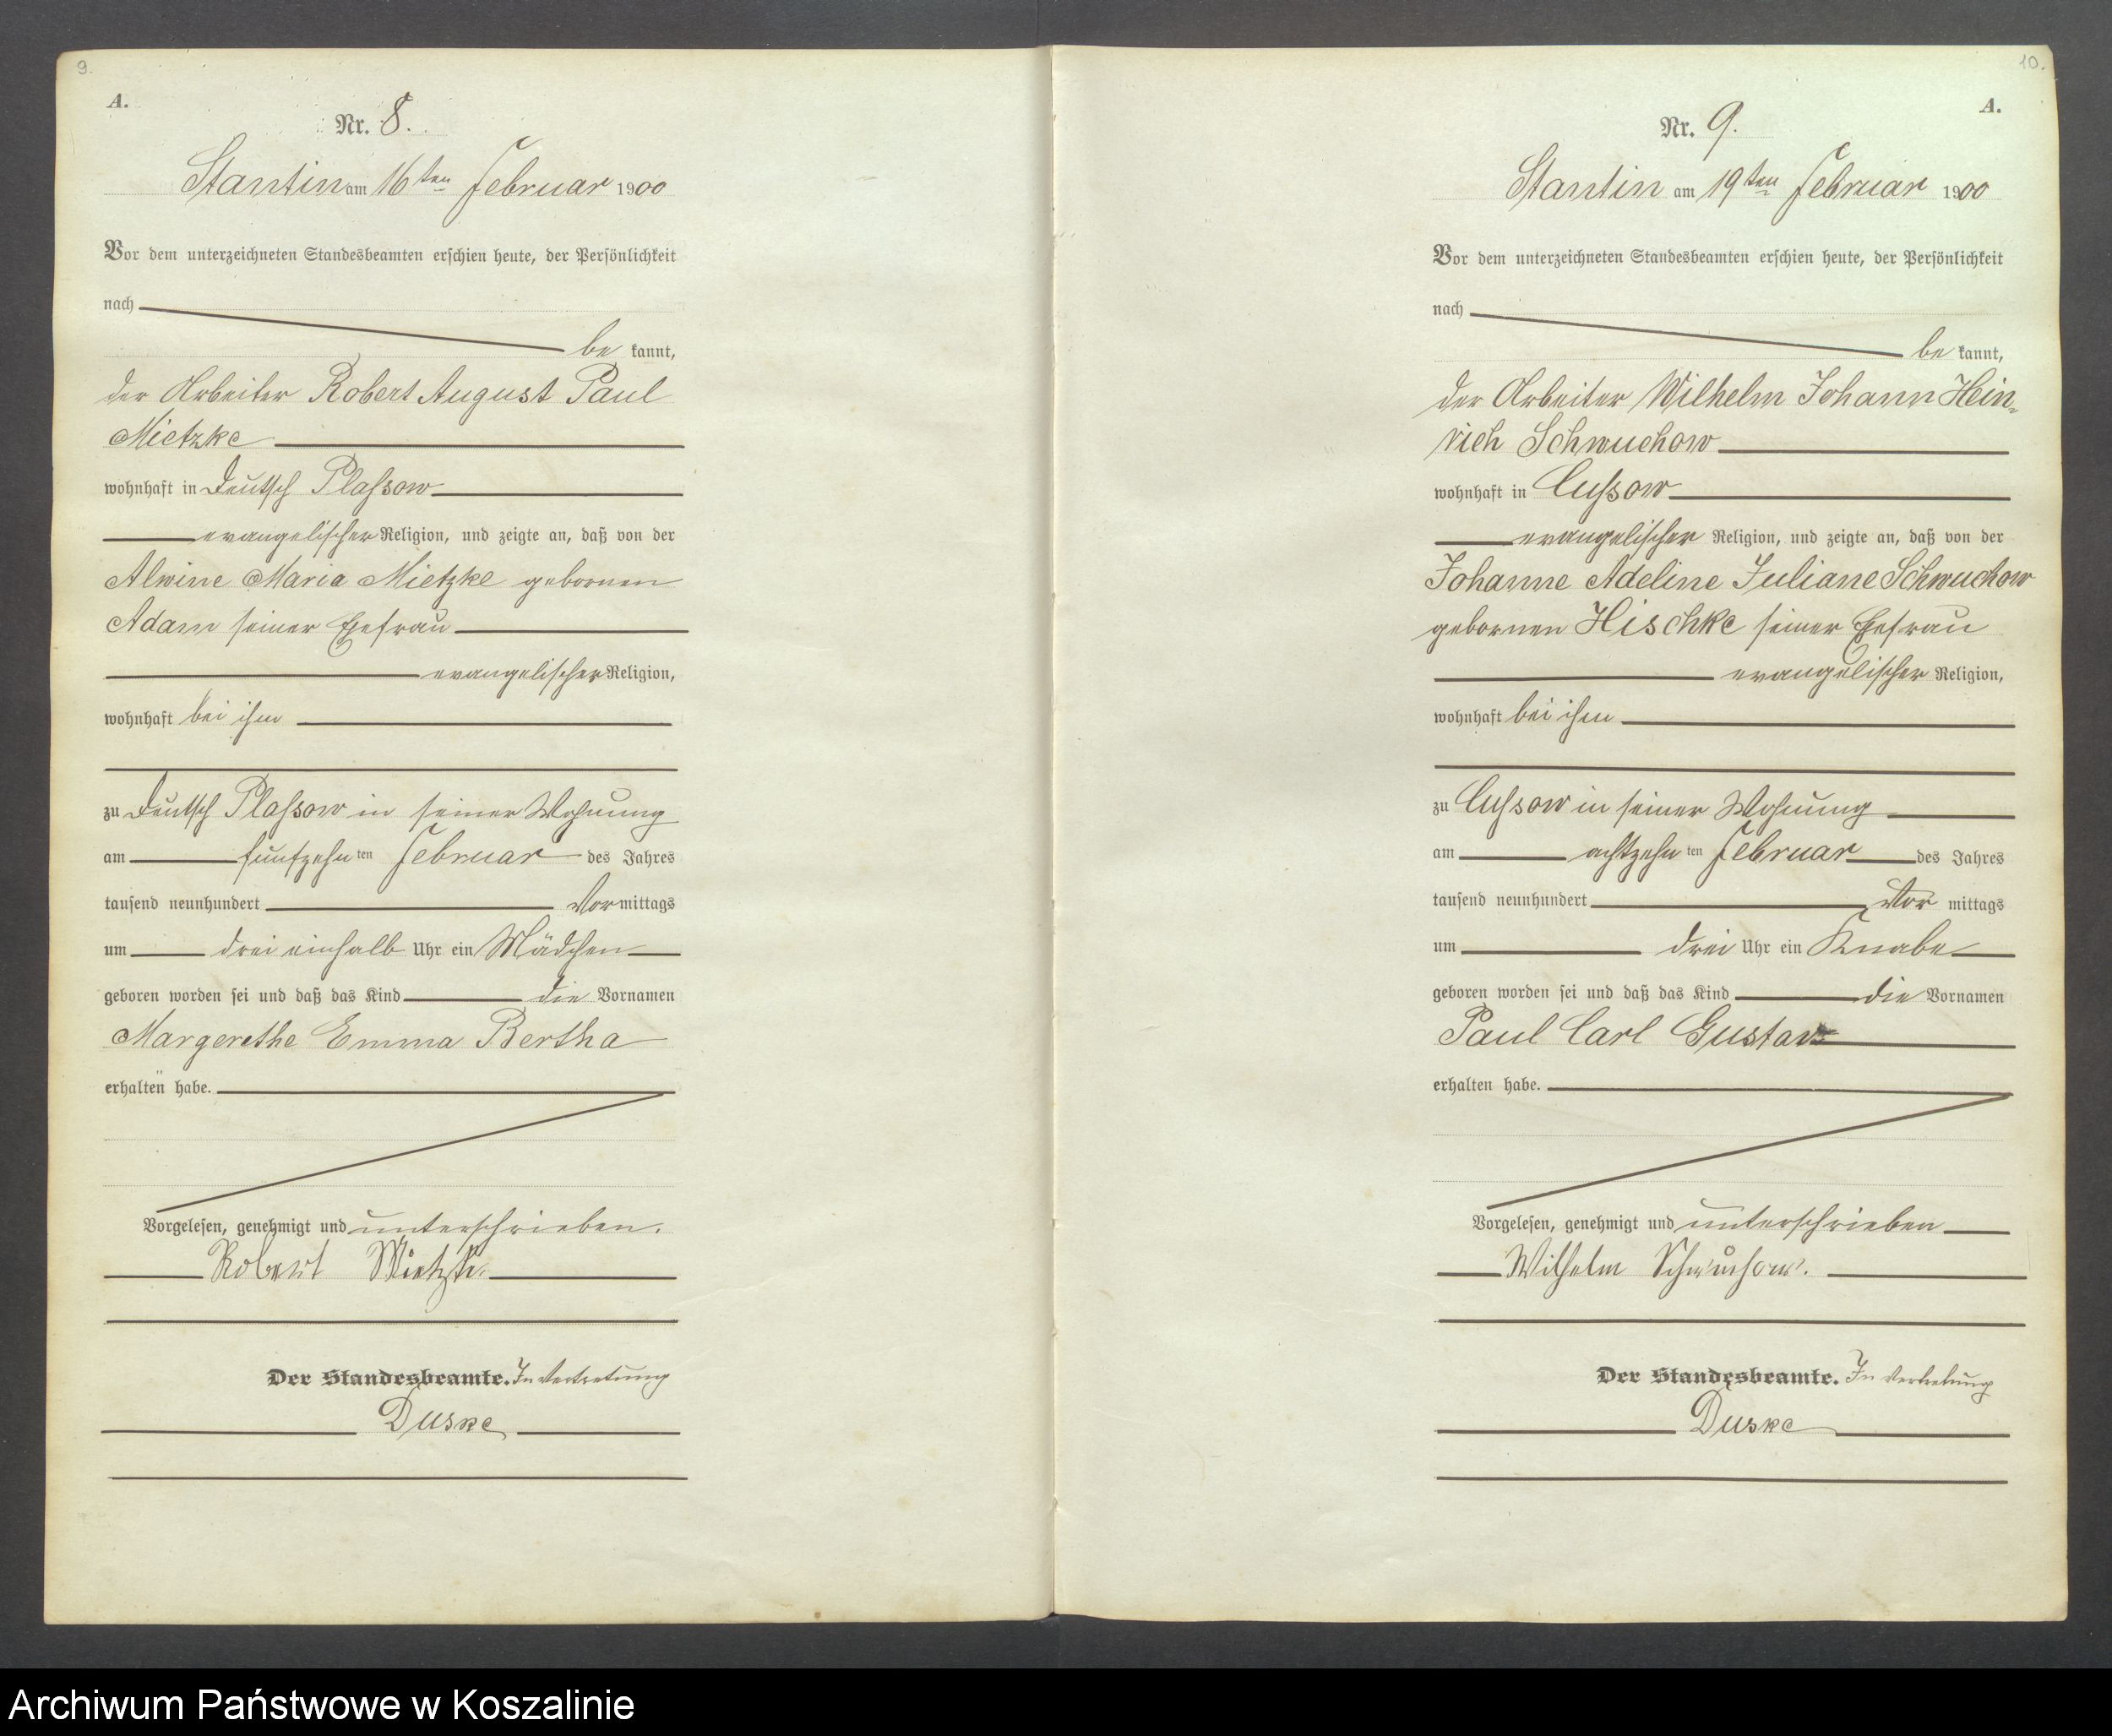 9.
A.
Nr. 8.
Stantin am 16ten Februar 1900
Vor dem unterzeichneten Standesbeamten erschien heute, der Persönlichkeit
nach
be kannt,
der Arbeiter Robert August Paul
Mietzke
wohnhaft in Deutsch Plassow
evangelischer Religion, und zeigte an, daß von der
Alwine Maria Mietzke gebornen
Adam seiner Ehefrau
evangelischer Religion,
wohnhaft bei ihm
zu Deutsch Plassow in seiner Wohnung
am fünfzehn ten Februar des Jahres
tausend neunhundert Vormittags
um drei einhalb Uhr ein Mädchen
geboren worden sei und daß das Kind die Vornamen
Margerethe Emma Bertha
erhalten habe.
Vorgelesen, genehmigt und unterschrieben.
Robert Mietzke
Der Standesbeamte. In Vertretung
Duske
10.
A.
Nr. 9.
Stantin am 19ten Februar 1900
Vor dem unterzeichneten Standesbeamten erschien heute, der Persönlichkeit
nach
be kannt,
der Arbeiter Wilhelm Johann Hein-
rich Schwuchow
wohnhaft in Cussow
evangelischer Religion, und zeigte an, daß von der
Johanne Adeline Juliane Schwuchow
gebornen Hischke seiner Ehefrau
evangelischer Religion,
wohnhaft bei ihm
zu Cussow in seiner Wohnung
am achtzehn ten Februar des Jahres
tausend neunhundert Vor mittags
um drei Uhr ein Knabe
geboren worden sei und daß das Kind die Vornamen
Paul Carl Gustav
erhalten habe.
Vorgelesen, genehmigt und unterschrieben
Wilhelm Schwuchow.
Der Standesbeamte. In Vertretung
Duske
Archiwum Państwowe w Koszalinie